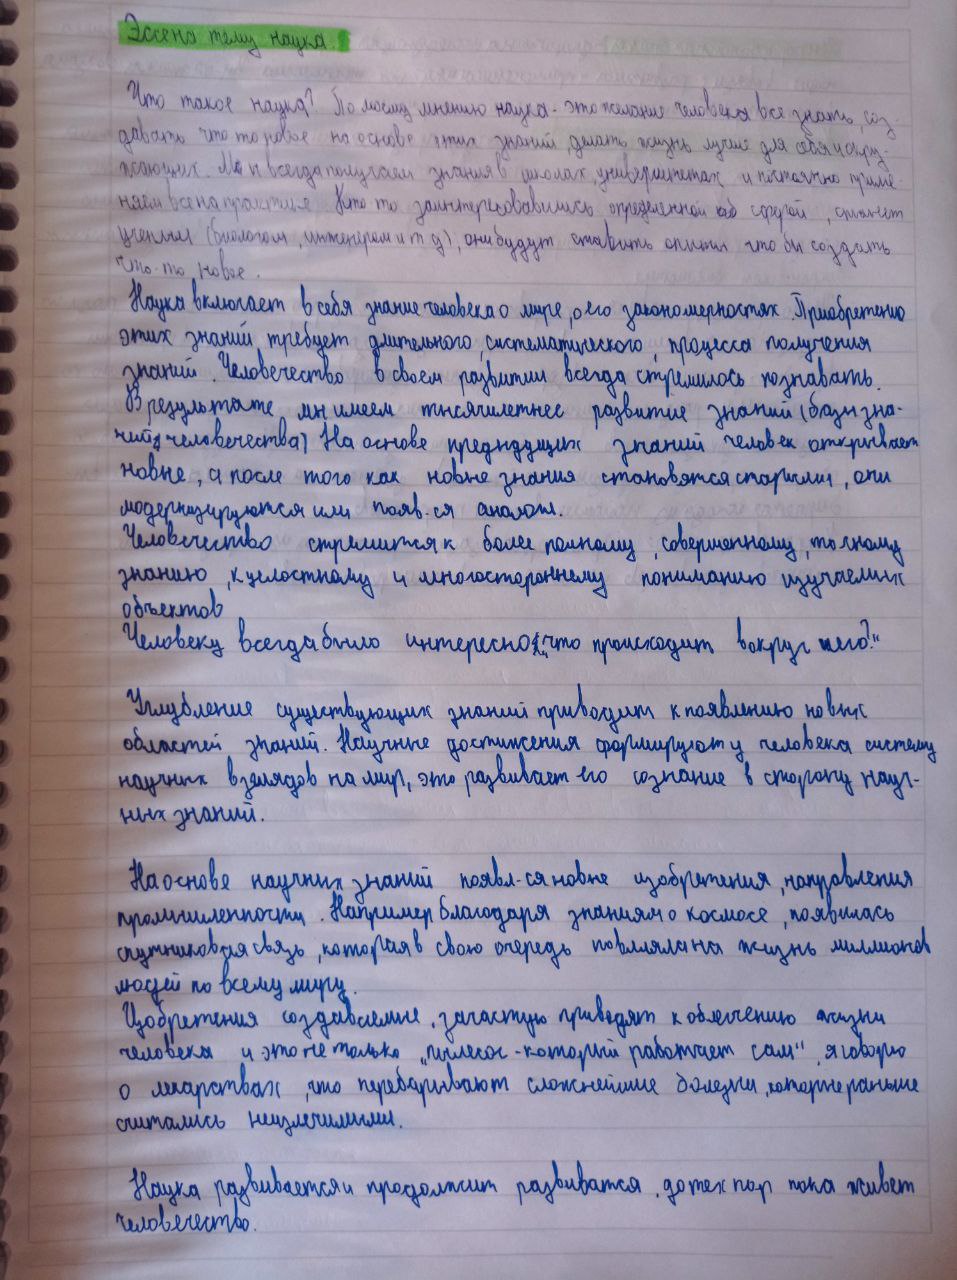 Эссе на тему наука.
Что такое наука? По моему мнению наука - это желание человека все знать, соз-
давать что то новое на основе этих знаний, делать жизнь лучше для себя и окру-
жающих. Мы всегда получаем знания в школах, университетах и постоянно приме-
няем все на практике. Кто то заинтересовавшись определенной сферой, станет
ученым (биологом, инженером и т д), они будут ставить опыты что бы создать
что-то новое.
Наука включает в себя знание человека о мире, о его закономерностях. Приобретению
этих знаний требует длительного, систематического, процесса получения
знаний. Человечество в своем развитии всегда стремилось познавать.
В результате мы имеем тысячилетнее развитие знаний (базы зна-
ний человечества) На основе предыдущих знаний человек открывает
новые, а после того как новые знания становятся старыми, они
модернизируются или появ-ся аналоги.
Человечество стремится к более полному, совершенному, точному
знанию, к целостному и многостороннему пониманию изучаемых
объектов
Человеку всегда было интересно: "что происходит вокруг него?"
Углубление существующих знаний приводит к появлению новых
областей знаний. Научные достижения формируют у человека систему
научных взглядов на мир, это развивает его сознание в сторону науч-
ных знаний.
На основе научных знаний появл-ся новые изобретения, направления
промышленности. Например благодаря знаниям о космосе, появилась
спутниковая связь, которая в свою очередь повлияла на жизнь миллионов
людей по всему миру.
Изобретения создаваемые, зачастую приводят к облегчению жизни
человека и это не только "пылесос - который работает сам", я говорю
о лекарствах, что перебаривают сложнейшие болезни, которые раньше
считались неизлечимыми.
Наука развивается и продолжит развиватся, до тех пор пока живет
человечество.